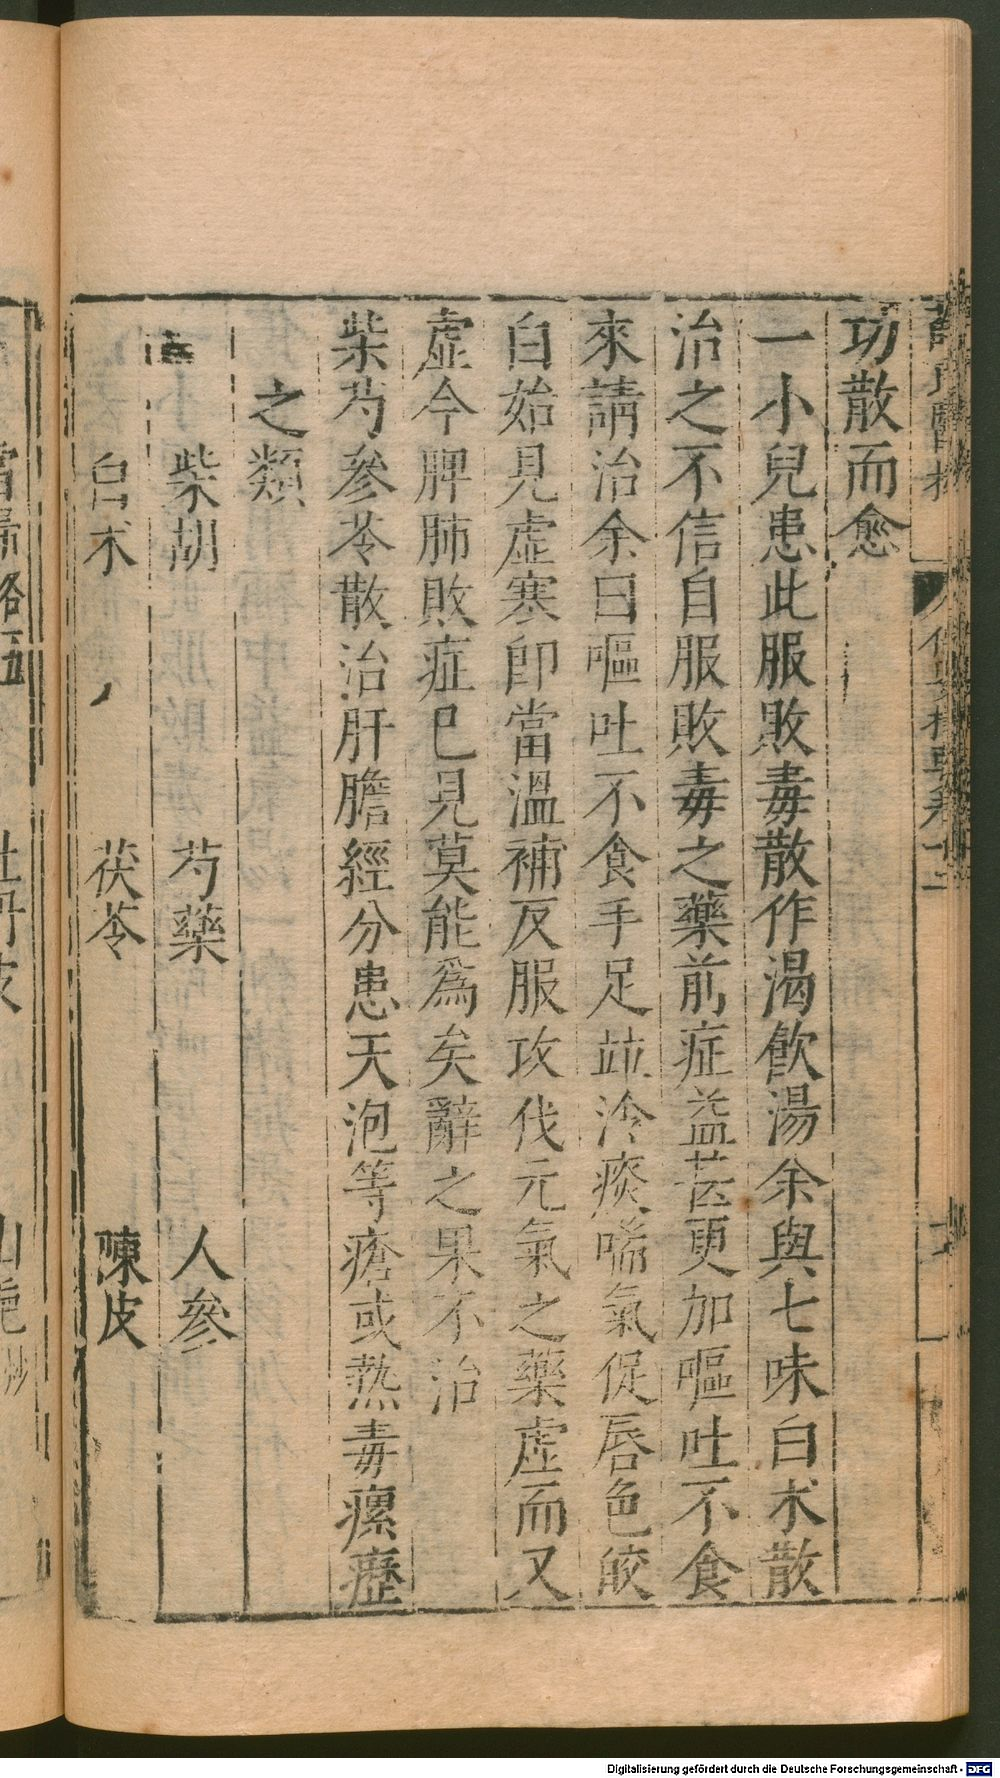 功散而愈
一小兒患此服敗毒散作渴飲湯余與七味白朮散
治之不信自服敗毒之藥前症益甚更加嘔吐不食
來請治余曰嘔吐不食手足並冷痰喘氣促唇色皎
白始見虛寒即當溫補反服攻伐元氣之藥虛而又
虛今脾肺敗症已見莫能為矣辭之果不治
柴芍參苓散治肝膽經分患天泡等瘡或熱毒瘰癧
之類
柴胡 芍藥 人參
白朮 茯苓 陳皮
當歸各五 牡丹皮 山梔炒
Digitalisierung gefördert durch die Deutsche Forschungsgemeinschaft - DFG